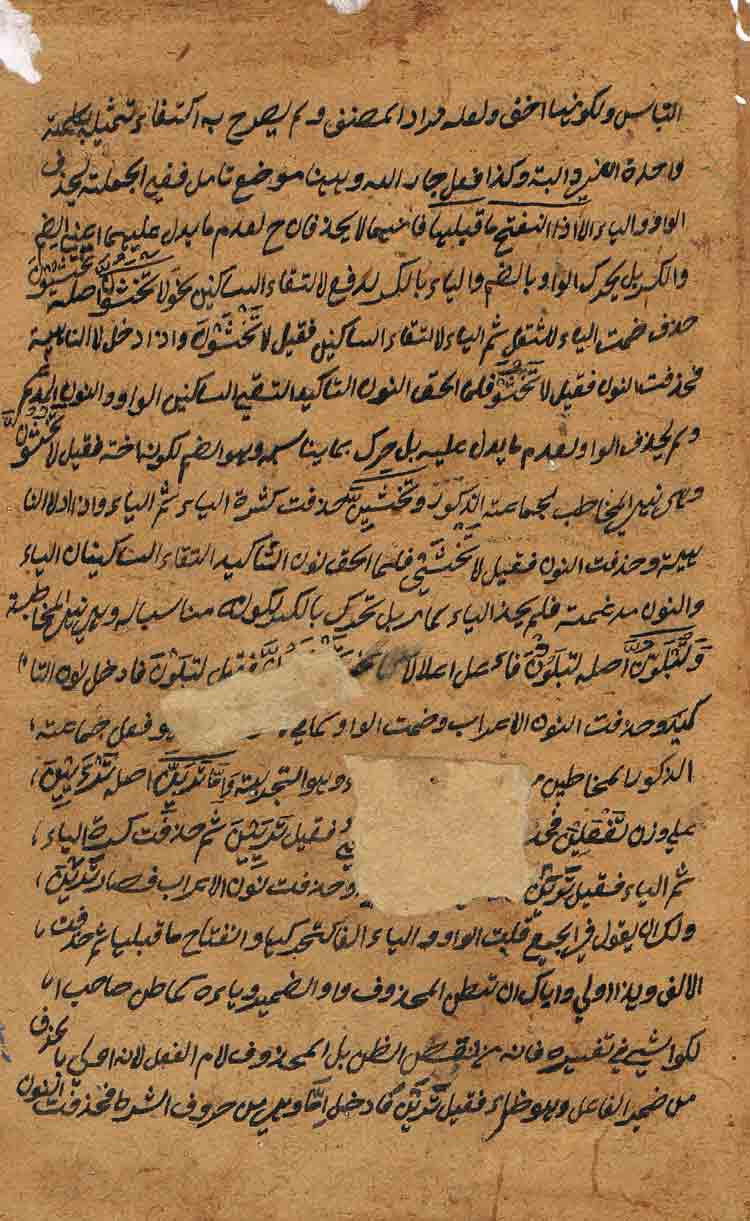 التباس ولكونها اخف ولعله مراد المصنف ولم يصرح به اكتفاء بتمثيله بكلمة
واحدة البتة وكذا فعل جار الله وههنا موضع تامل ففيه الجملة يحذف
الواو والياء الا اذا انفتح ما قبلهما فانهما لا يحذفان ح لعدم ما يدل عليهما اعني الضم
والكسر بل يحرك الواو بالضم والياء بالكسر لدفع لالتقاء الساكنين نحو لا تخشون اصله تخشيون
حذف ضمت الياء للثقل ثم الياء لالتقاء الساكنين فقيل لا تخشون واذا دخل لا الناهية
فحذفت النون فقيل لا تخشو فلما الحق النون التاكيد التقي الساكنين الواو والنون المدغم
ولم يحذف الواو لعدم ما يدل عليه بل حرك بما يناسبه وهو الضم لكونه اخته فقيل لا تخشون
وهي نهي المخاطب لجماعة الذكور وتخشين حذفت كسرة الياء ثم الياء واذا دلا النا
هية وحذفت النون فقيل لا تخشي فلما الحق نون التاكيد التقاء الساكينان الياء
والنون مدغمة فلم يحذ الياء لما مر بل تحرك بالكسر لكونه مناسبا له وهي نهي المخاطبة
ولتبلون اصله لتبلون فاعل اعلال فقيل لتبلون فادخل نون التا
كيد وحذفت النون الاعراب وضمت الواو كما في وفعل جماعة
الذكور المخاطبين وهو التجربة واما ترين اصله ترءيين
على وزن تفعلين فحذ فقيل تريين ثم حذفت كسرة الياء
ثم الياء فقيل ترين وحذفت نون الاعراب فصار ترين
ولك ان يقول في الجميع قلبت الواو والياء الفا لتحركها وانفتاح ما قبلها ثم حذفت
الالف وهذا اولي واياك ان تظن المحذوف واو الضمير وياءه كما ظن صاحب ا
لكواشي في تفسيره فانه من بعض الظن بل المحذوف لام الفعل لانه اولي بالحذف
من ضمير الفاعل وهو ظاهر فقيل ترين فادخل اما وهي من حروف الشرط فحذفت النون